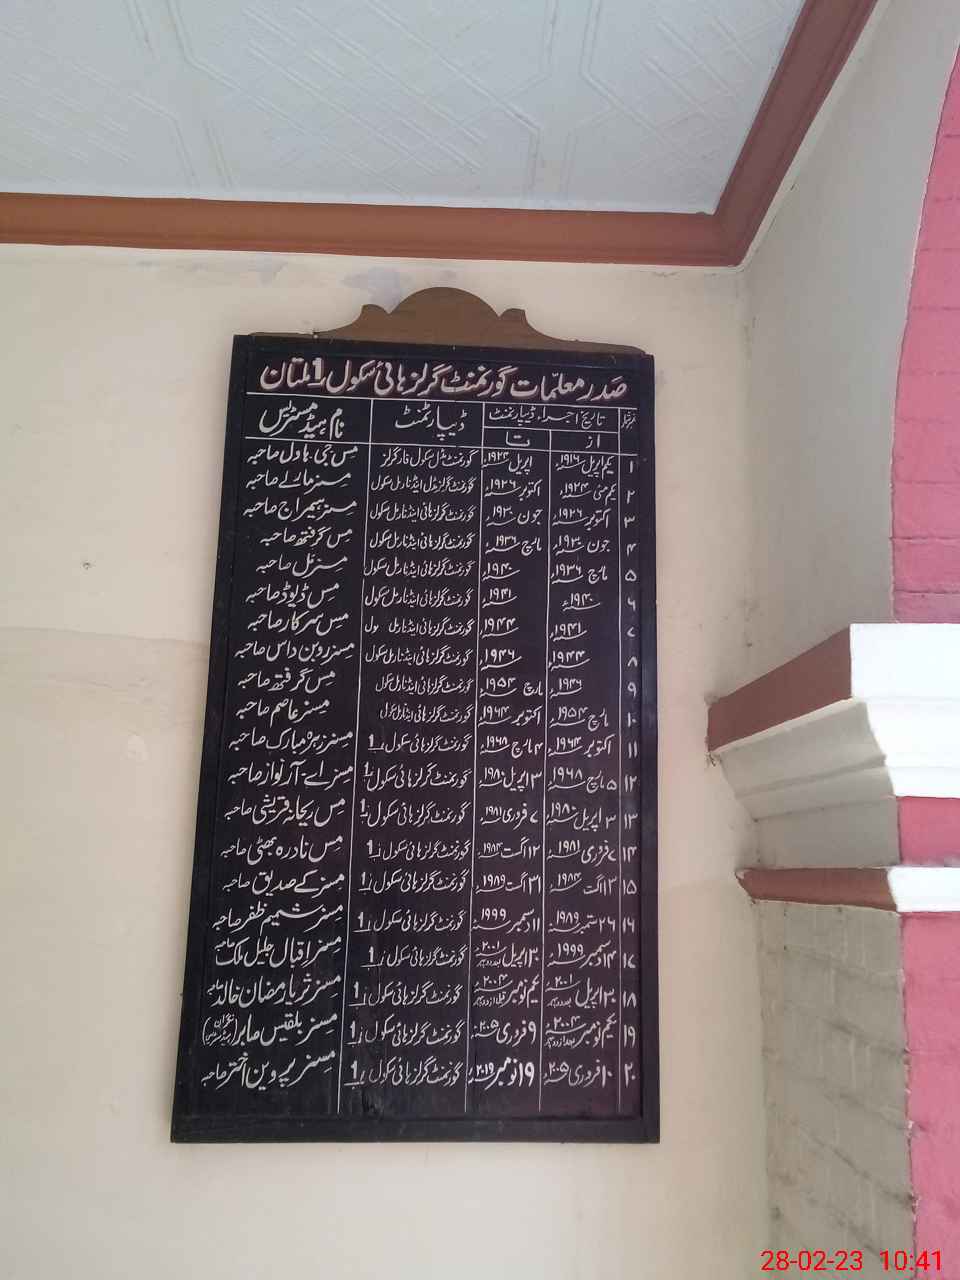 صدر معلمات گورنمنٹ گرلز ہائی سکول نمبر 1 ملتان
نمبر شمار تاریخ اجراء ڈیپارٹمنٹ ڈیپارٹمنٹ نام ہیڈ مسٹریس
از تا
۱ یکم اپریل ۱۹۱۶ء اپریل ۱۹۲۴ء گورنمنٹ مڈل سکول فار گرلز مس جی۔ ہاول صاحبہ
۲ یکم مئی ۱۹۲۴ء اکتوبر ۱۹۲۶ء گورنمنٹ گرلز مڈل اینڈ نارمل سکول مسز مارلے صاحبہ
۳ اکتوبر ۱۹۲۶ء جون ۱۹۳۰ء گورنمنٹ گرلز ہائی اینڈ نارمل سکول مسز ہیمراج صاحبہ
۴ جون ۱۹۳۰ء مارچ ۱۹۳۶ء گورنمنٹ گرلز ہائی اینڈ نارمل سکول مس گرفتھ صاحبہ
۵ مارچ ۱۹۳۶ء ۱۹۴۰ء گورنمنٹ گرلز ہائی اینڈ نارمل سکول مسز مل صاحبہ
۶ ۱۹۴۰ء ۱۹۴۱ء گورنمنٹ گرلز ہائی اینڈ نارمل سکول مس ڈیوڈ صاحبہ
۷ ۱۹۴۱ء ۱۹۴۴ء گورنمنٹ گرلز ہائی اینڈ نارمل ول مس سرکار صاحبہ
۸ ۱۹۴۴ء ۱۹۴۶ء گورنمنٹ گرلز ہائی اینڈ نارمل سکول مسز روبن داس صاحبہ
۹ ۱۹۴۶ء مارچ ۱۹۵۴ء گورنمنٹ گرلز ہائی اینڈ نارمل سکول مس گرفتھ صاحبہ
۱۰ مارچ ۱۹۵۴ء اکتوبر ۱۹۶۴ء گورنمنٹ گرلز ہائی اینڈ نارمل سکول مسز عاصم صاحبہ
۱۱ اکتوبر ۱۹۶۴ء ۴ مارچ ۱۹۶۸ء گورنمنٹ گرلز ہائی سکول نمبر 1 مسز زہرہ مبارک صاحبہ
۱۲ ۵ مارچ ۱۹۶۸ء ۳ اپریل ۱۹۸۰ء گورنمنٹ گرلز ہائی سکول نمبر 1 مسز اے۔ آر نواز صاحبہ
۱۳ ۳ اپریل ۱۹۸۰ء ۷ فروری ۱۹۸۱ء گورنمنٹ گرلز ہائی سکول نمبر 1 مس ریحانہ قریشی صاحبہ
۱۴ ۷ فروری ۱۹۸۱ء ۱۲ اگست ۱۹۸۴ء گورنمنٹ گرلز ہائی سکول نمبر 1 مس نادرہ بھٹی صاحبہ
۱۵ ۱۳ اگست ۱۹۸۴ء ۳۱ اگست ۱۹۸۹ء گورنمنٹ گرلز ہائی سکول نمبر 1 مسز کے صدیق صاحبہ
۱۶ ۲۶ ستمبر ۱۹۸۹ء ۱۱ دسمبر ۱۹۹۹ء گورنمنٹ گرلز ہائی سکول نمبر 1 مسز شمیم ظفر صاحبہ
۱۷ ۱۴ دسمبر ۱۹۹۹ء ۳۰ اپریل ۲۰۰۱ء بعد دوپہر گورنمنٹ گرلز ہائی سکول نمبر 1 مسز اقبال جلیل ملک صاحبہ
۱۸ ۳۰ اپریل ۲۰۰۱ء بعد دوپہر یکم نومبر ۲۰۰۴ء قبل از دوپہر گورنمنٹ گرلز ہائی سکول نمبر 1 مسز ثریا رمضان خالد صاحبہ
۱۹ یکم نومبر ۲۰۰۴ء بعد از دوپہر ۹ فروری ۲۰۰۵ء گورنمنٹ گرلز ہائی سکول نمبر 1 مسز بلقیس صابر (نگران ہیڈ مسٹریس)
۲۰ ۱۰ فروری ۲۰۰۵ء ۱۹ نومبر ۲۰۱۹ء گورنمنٹ گرلز ہائی سکول نمبر 1 مسز پروین اختر صاحبہ
28-02-23 10:41